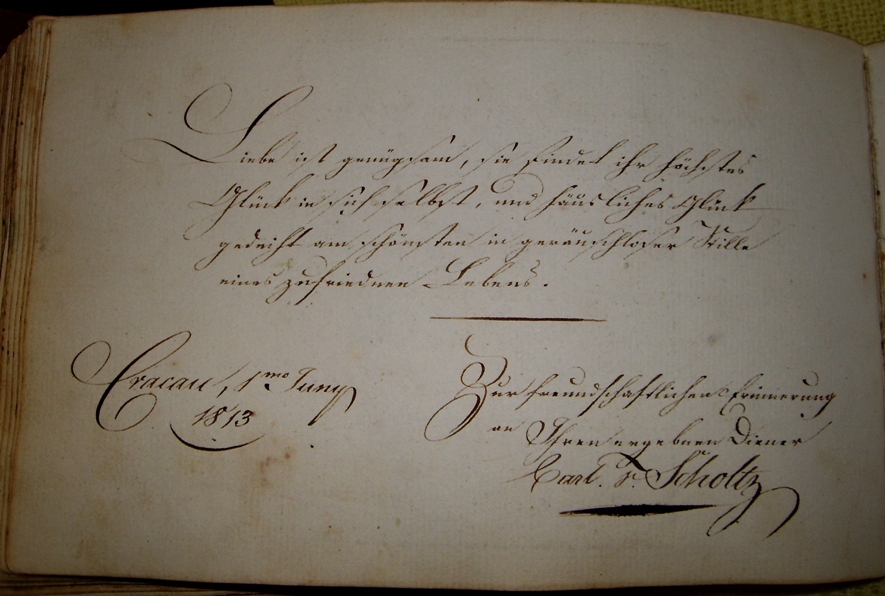 Liebe ist genügsam, sie findet ihr höchstes
Glück in sich selbst, und häusliches Glück
gedeiht am schönsten in geräuschloser Stille
eines zufriednen Lebens.
Cracau, 1mo Juny
1813
Zur freundschaftlichen Erinnerung
an Ihren ergebnen Diener
Carl. v. Scholtz